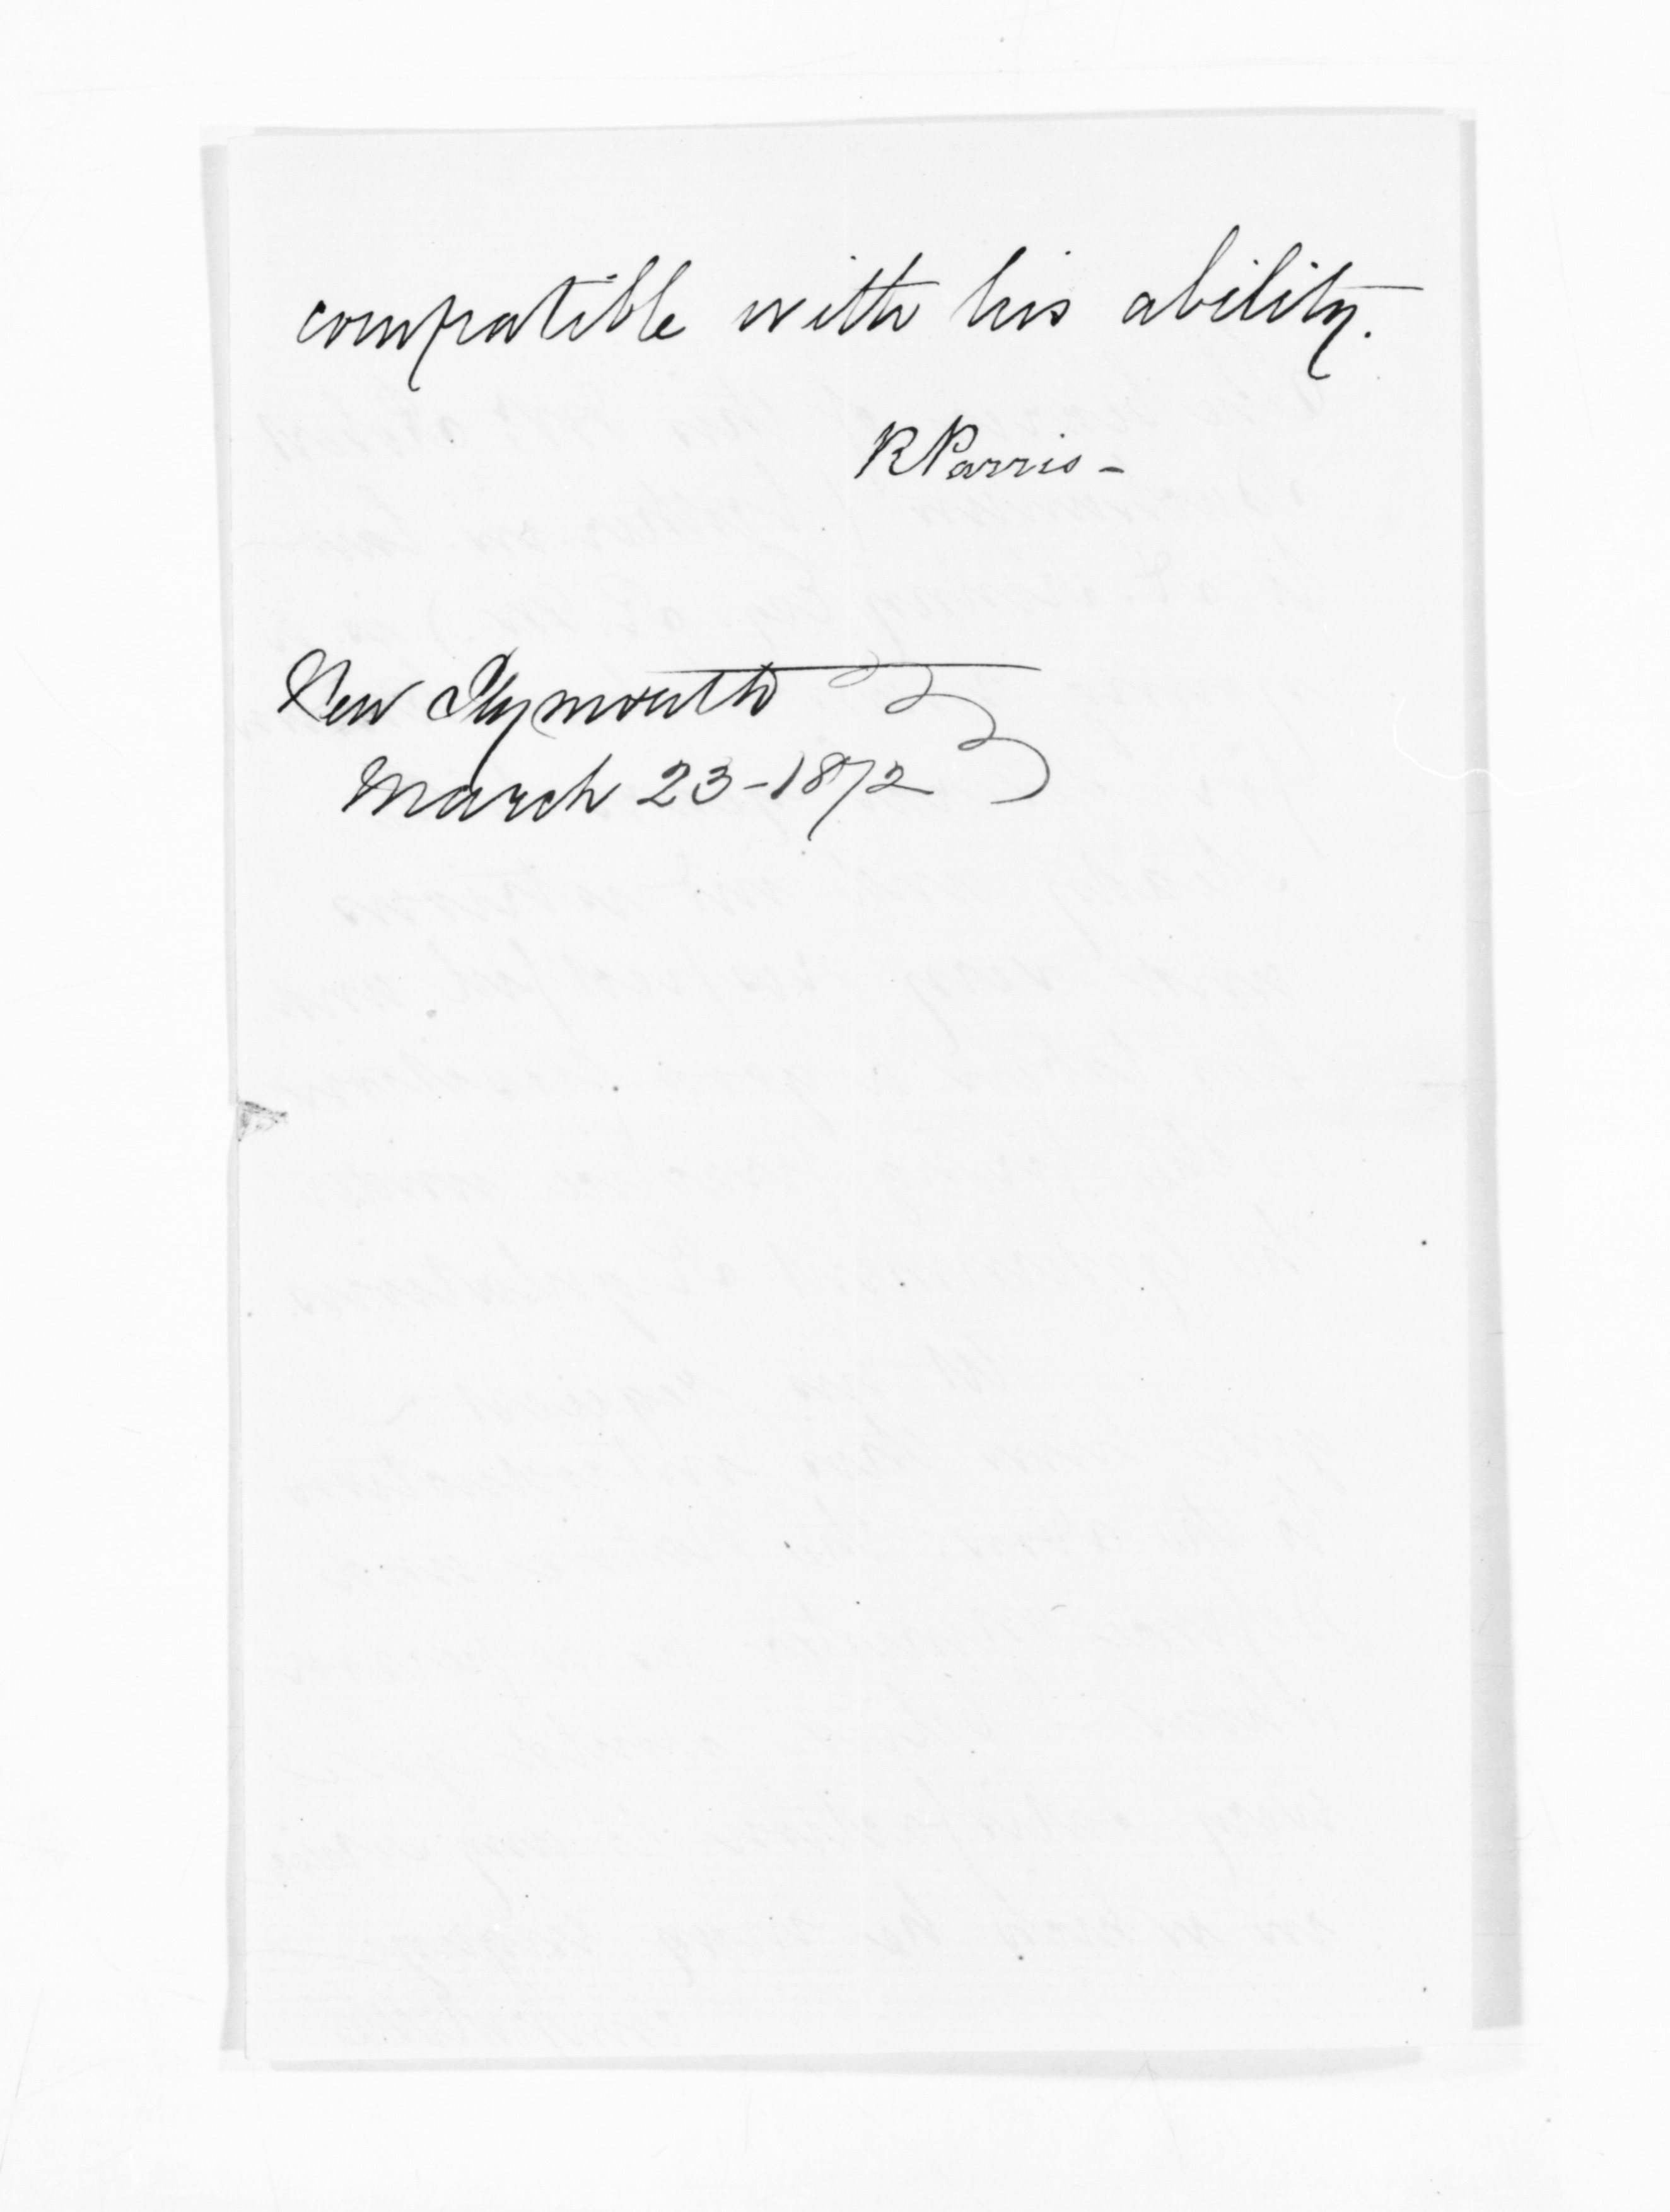 compatible with his ability.
R Parris -
New Plymouth
March 23 - 1872